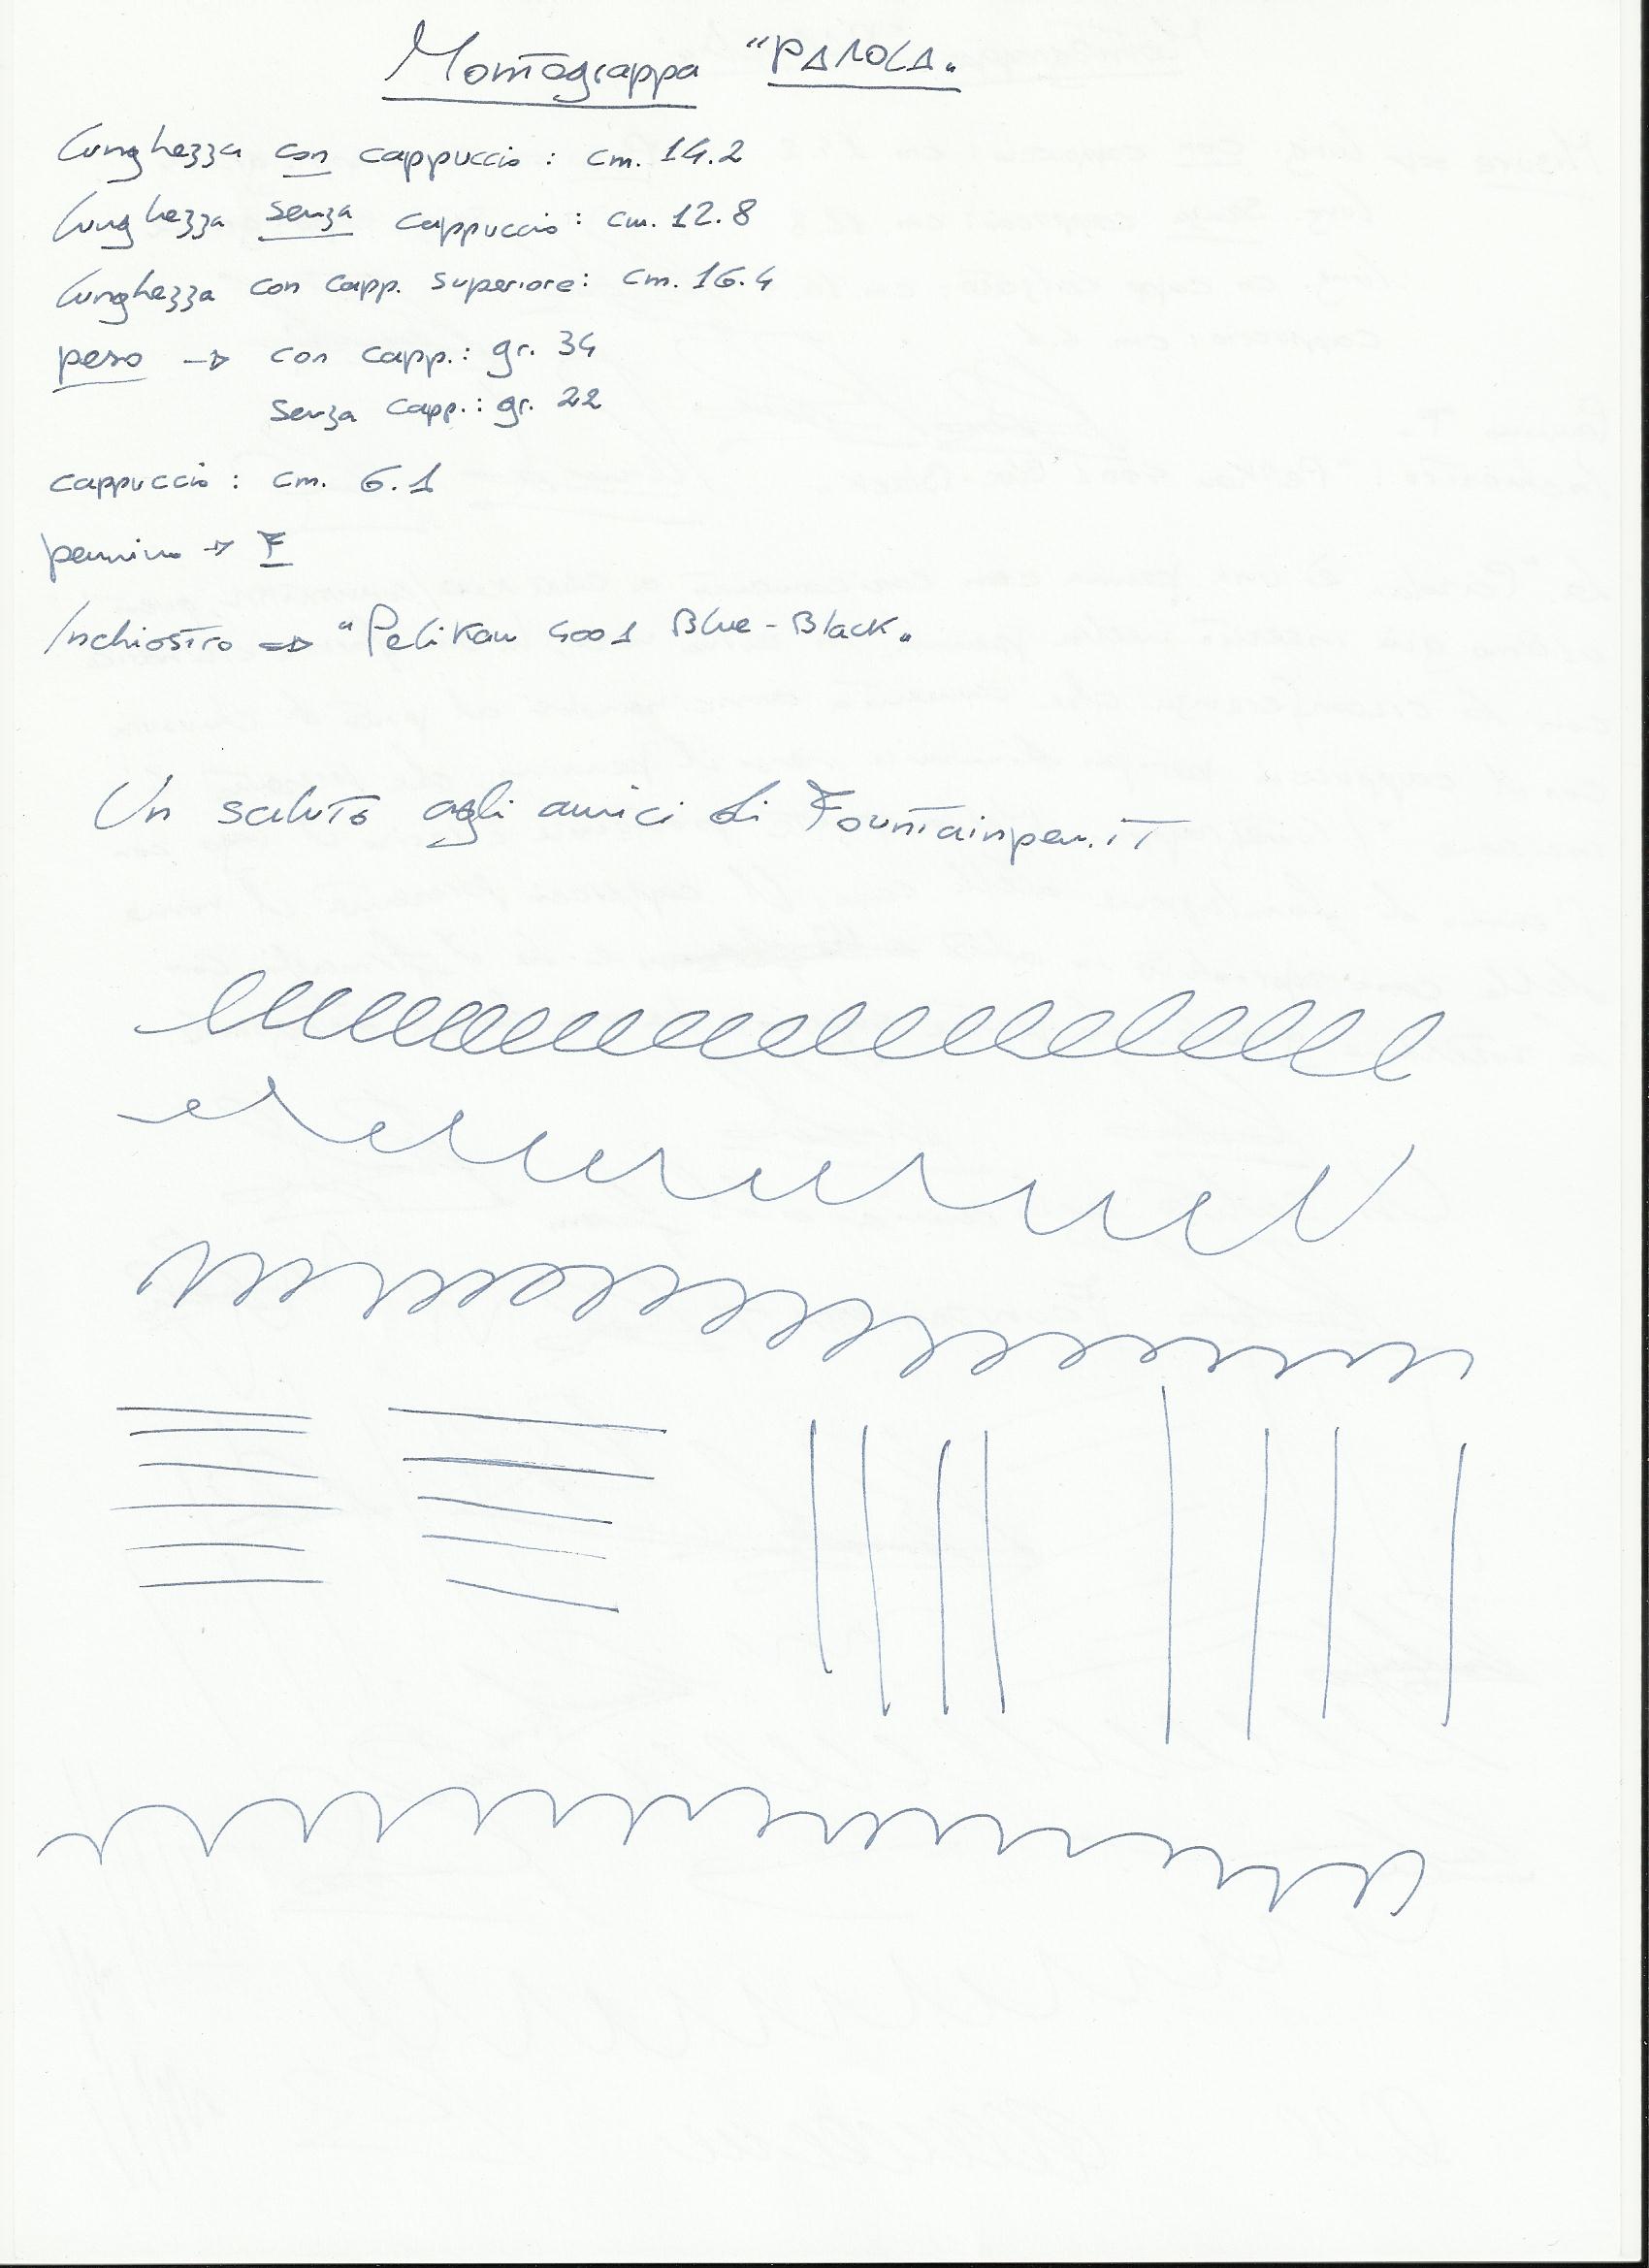 Montegrappa "PAROLA"
Lunghezza con cappuccio : cm. 14.2
Lunghezza senza cappuccio : cm. 12.8
Lunghezza con capp. superiore : cm. 16.4
peso → con capp. : gr. 34
senza capp. : gr. 22
cappuccio : cm. 6.1
pennino → F
Inchiostro ⇒ "Pelikan 4001 Blue-Black"
Un saluto agli amici di Fountainpen.it